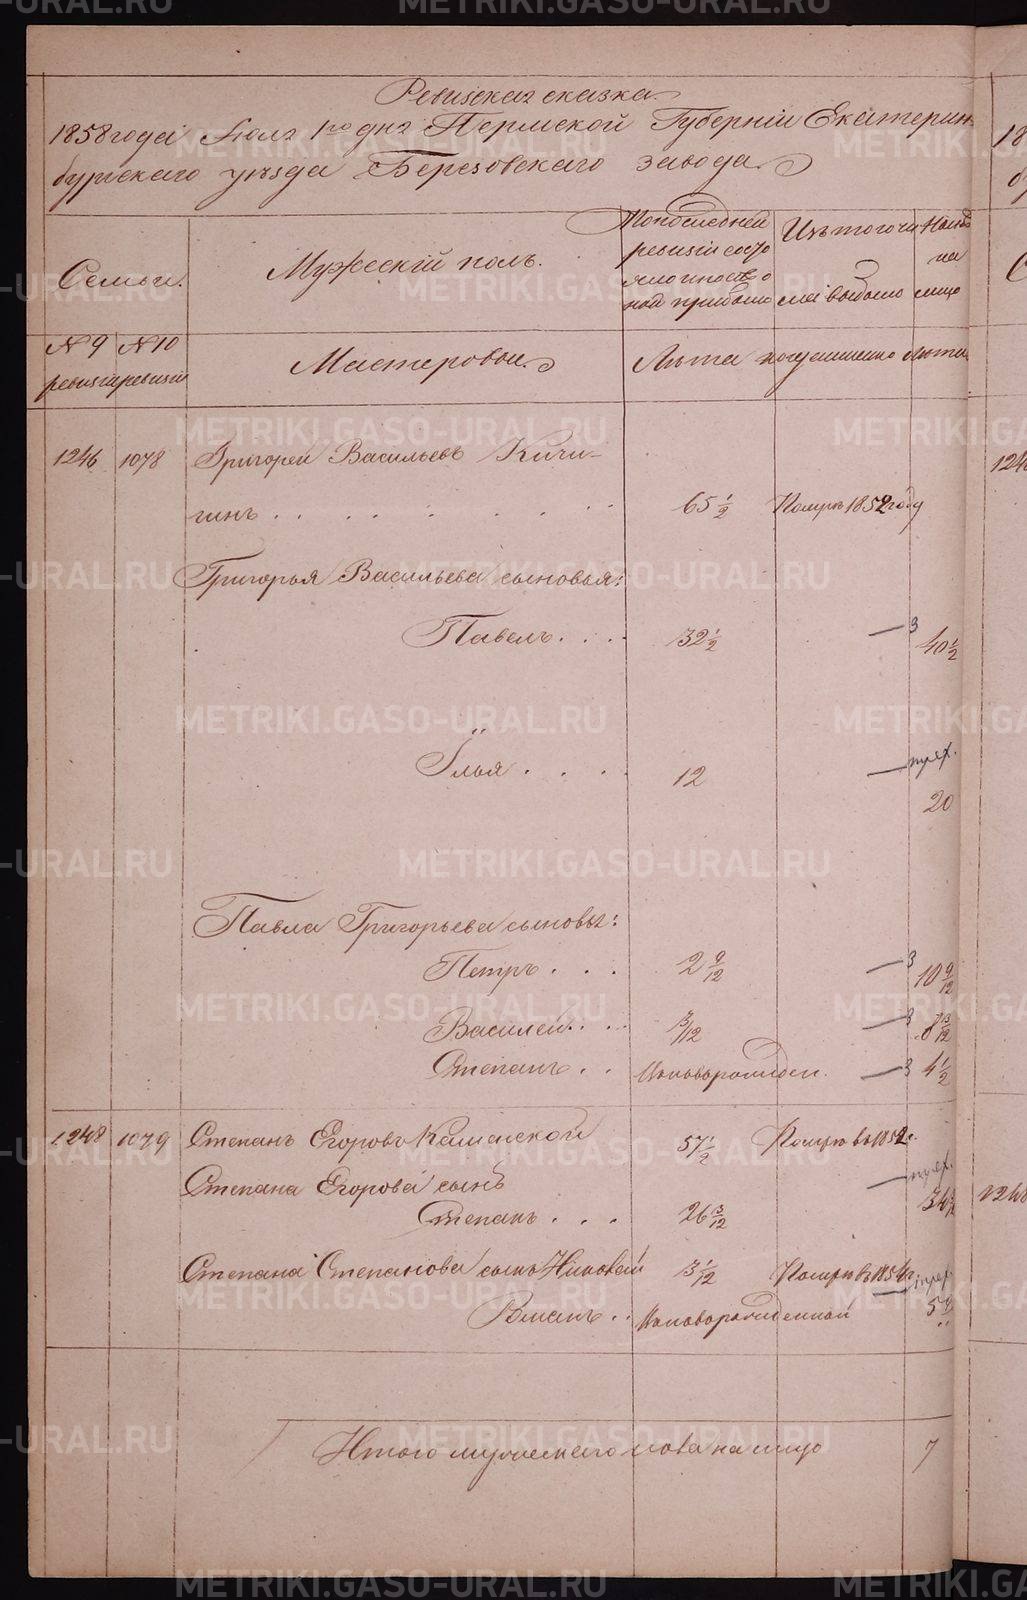 Ревизская сказка
1858 года Июля 1го дня Пермской Губернiи Екатерин-
бургскаго уѣзда Березовскаго завода
Семьи.
Мужескiй полъ.
По последней
ревизiи состо
яло и после о
ной прибыло
Изъ того чи
сла выбыло
Ныне
на
лицо
№ 9
ревизiи
№ 10
ревизiи
Мастеровые
Лѣта
когда именно
лѣта
1246 1078 Григорей Васильевъ Кичи-
гинъ . . . . . . . . 65 1/2 Померъ 1852 году
Григорья Васильева сыновья:
Павелъ . . . . 32 1/2 — 3 40 1/2
Iлья . . . . 12 —
20
Павла Григорьева сыновья:
Петръ . . . 2 9/12 — 3 10 9/12
Василей . . . 3/12 — 3 8 3/12
Степанъ . . Новорожден. — 3 4 1/2
1248 1079 Степанъ Егоровъ Каменской 57 1/2 Померъ въ 1852 г.
Степана Егорова сынъ
Степанъ . . . 26 3/12 34 3/12
Степана Степанова сынъ Николай 3 1/12 Померъ въ 1854 г.
Романъ . . Новорожденной 5
Итого мужескаго пола на лицо 7
18
б
С
124
1248
METRIKI.GASO-URAL.RU